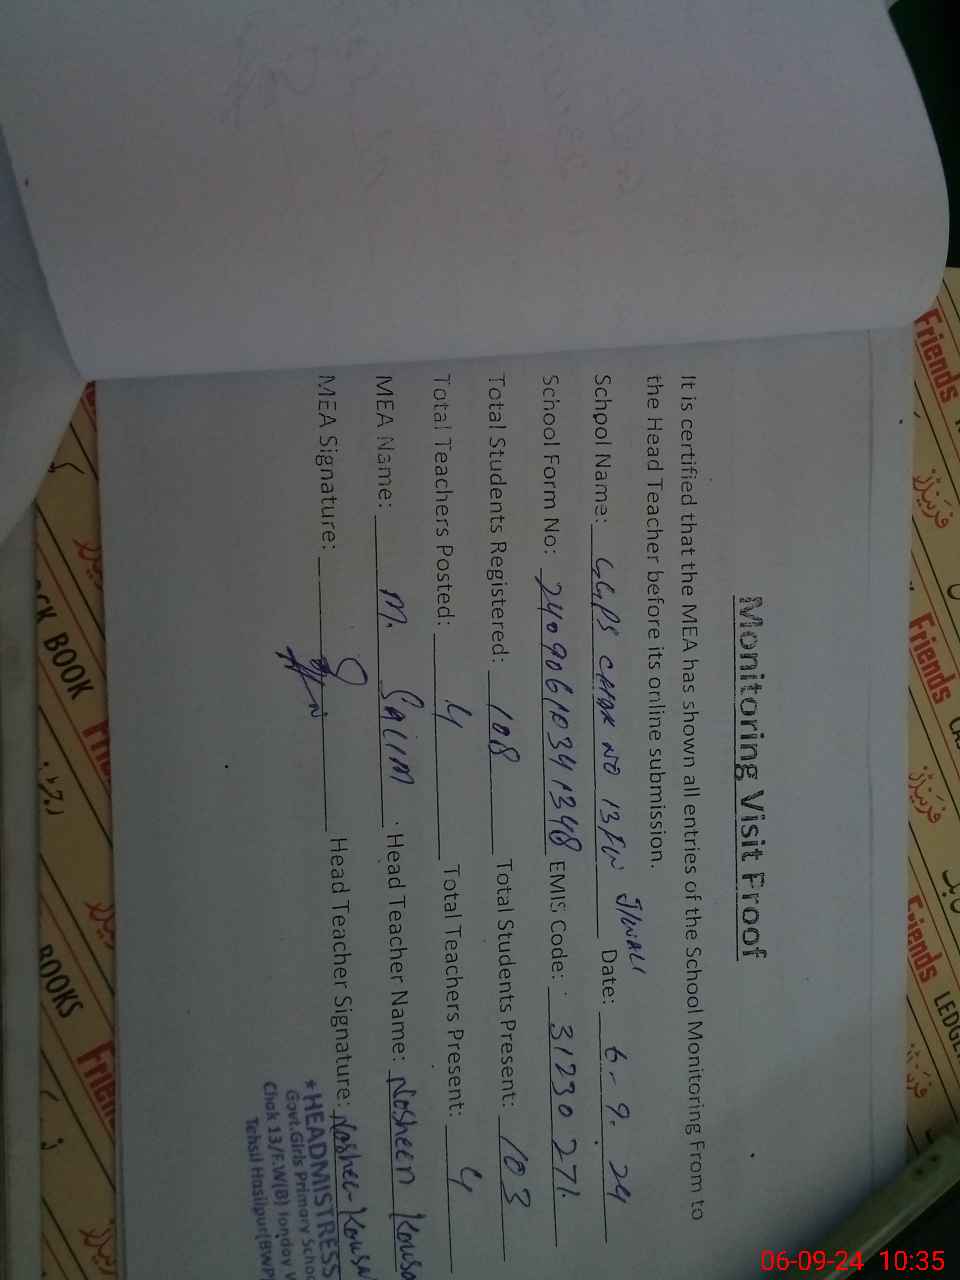 Monitoring Visit Proof
It is certified that the MEA has shown all entries of the School Monitoring From to
the Head Teacher before its online submission.
School Name: GGPS CHAK NO 13 FW J/WALI Date: 6-9-24
School Form No: 24090610341348 EMIS Code: 31230271
Total Students Registered: 108 Total Students Present: 103
Total Teachers Posted: 4 Total Teachers Present: 4
MEA Name: M. SALIM Head Teacher Name: Nosheen Kousa
MEA Signature: Head Teacher Signature: Noshee-Kousa
*HEADMISTRESS
Govt.Girls Primary Schoo
Chak 13/F.W(B)
Tehsil Hasilpur(BWP)
Friends
فرینڈز
Friends
فرینڈز
Friends LEDGE
BOOK
BOOKS
06-09-24 10:35